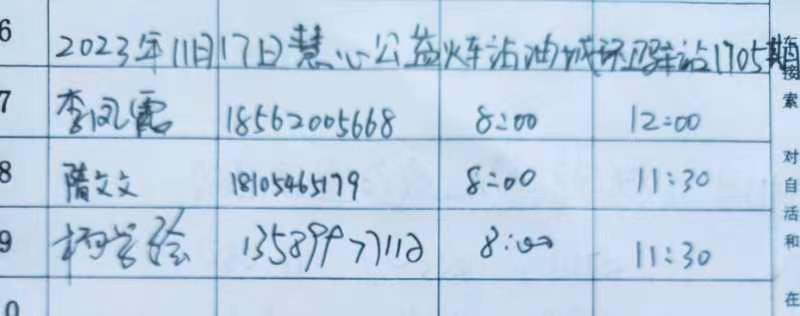 6 2023年11月17日慧心公益火车站油城环卫驿站1705期
7 李凤霞 18562005668 8:00 12:00
8 隋文文 18105465179 8:00 11:30
9 13589977112 8:00 11:30
接
索
对
自
活
和
在